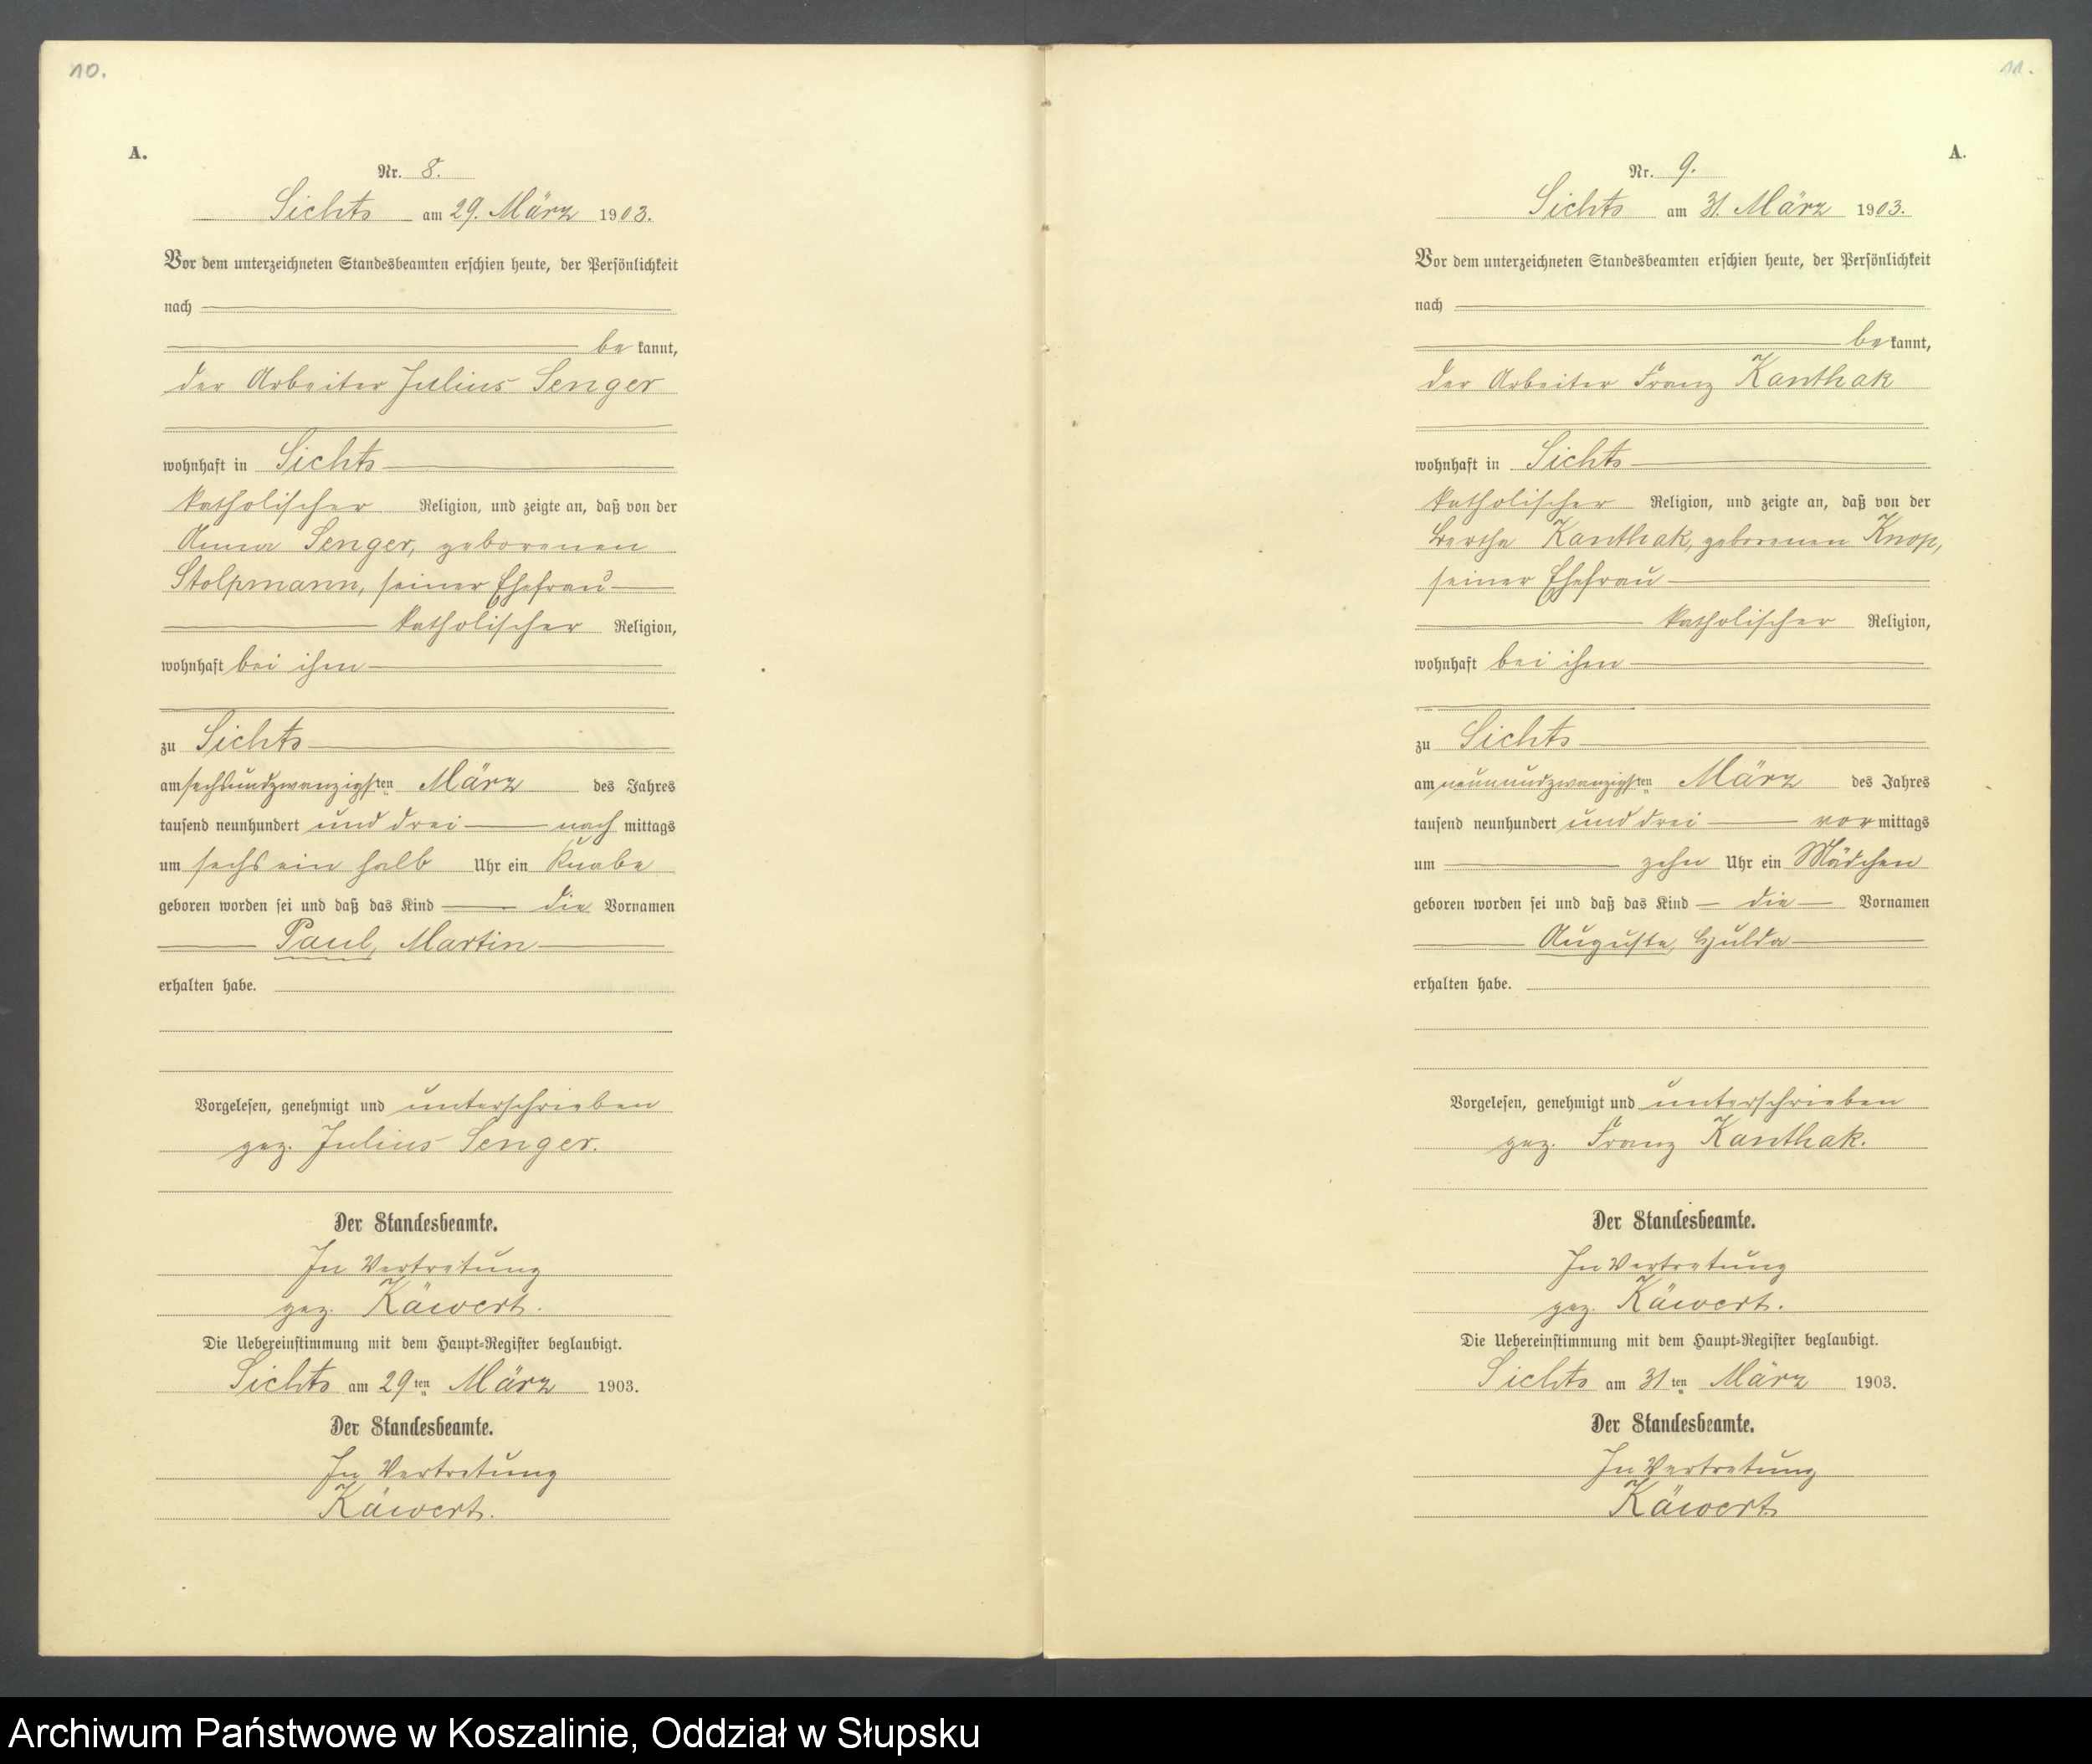 10.
A.
Nr. 8.
Sichts am 29. März 1903.
Vor dem unterzeichneten Standesbeamten erschien heute, der Persönlichkeit
nach
be kannt,
der Arbeiter Julius Senger
wohnhaft in Sichts
katholischer Religion, und zeigte an, daß von der
Anna Senger, geborenen
Stolpmann, seiner Ehefrau
katholischer Religion,
wohnhaft bei ihm
zu Sichts
am sechsundzwanzigsten März des Jahres
tausend neunhundert und drei nach mittags
um sechs ein halb Uhr ein Knabe
geboren worden sei und daß das Kind die Vornamen
Paul, Martin
erhalten habe.
Vorgelesen, genehmigt und unterschrieben
gez. Julius Senger.
Der Standesbeamte.
In Vertretung
gez. Käwert.
Die Uebereinstimmung mit dem Haupt-Register beglaubigt.
Sichts am 29ten März 1903.
Der Standesbeamte.
In Vertretung
Käwert.
11.
A.
Nr. 9.
Sichts am 31. März 1903.
Vor dem unterzeichneten Standesbeamten erschien heute, der Persönlichkeit
nach
be kannt,
der Arbeiter Franz Kanthak
wohnhaft in Sichts
katholischer Religion, und zeigte an, daß von der
Bertha Kanthak, geborenen Knop,
seiner Ehefrau
katholischer Religion,
wohnhaft bei ihm
zu Sichts
am neunundzwanzigsten März des Jahres
tausend neunhundert und drei vor mittags
um zehn Uhr ein Mädchen
geboren worden sei und daß das Kind die Vornamen
Auguste, Hulda
erhalten habe.
Vorgelesen, genehmigt und unterschrieben
gez. Franz Kanthak.
Der Standesbeamte.
In Vertretung
gez. Käwert.
Die Uebereinstimmung mit dem Haupt-Register beglaubigt.
Sichts am 31ten März 1903.
Der Standesbeamte.
In Vertretung
Käwert
Archiwum Państwowe w Koszalinie, Oddział w Słupsku